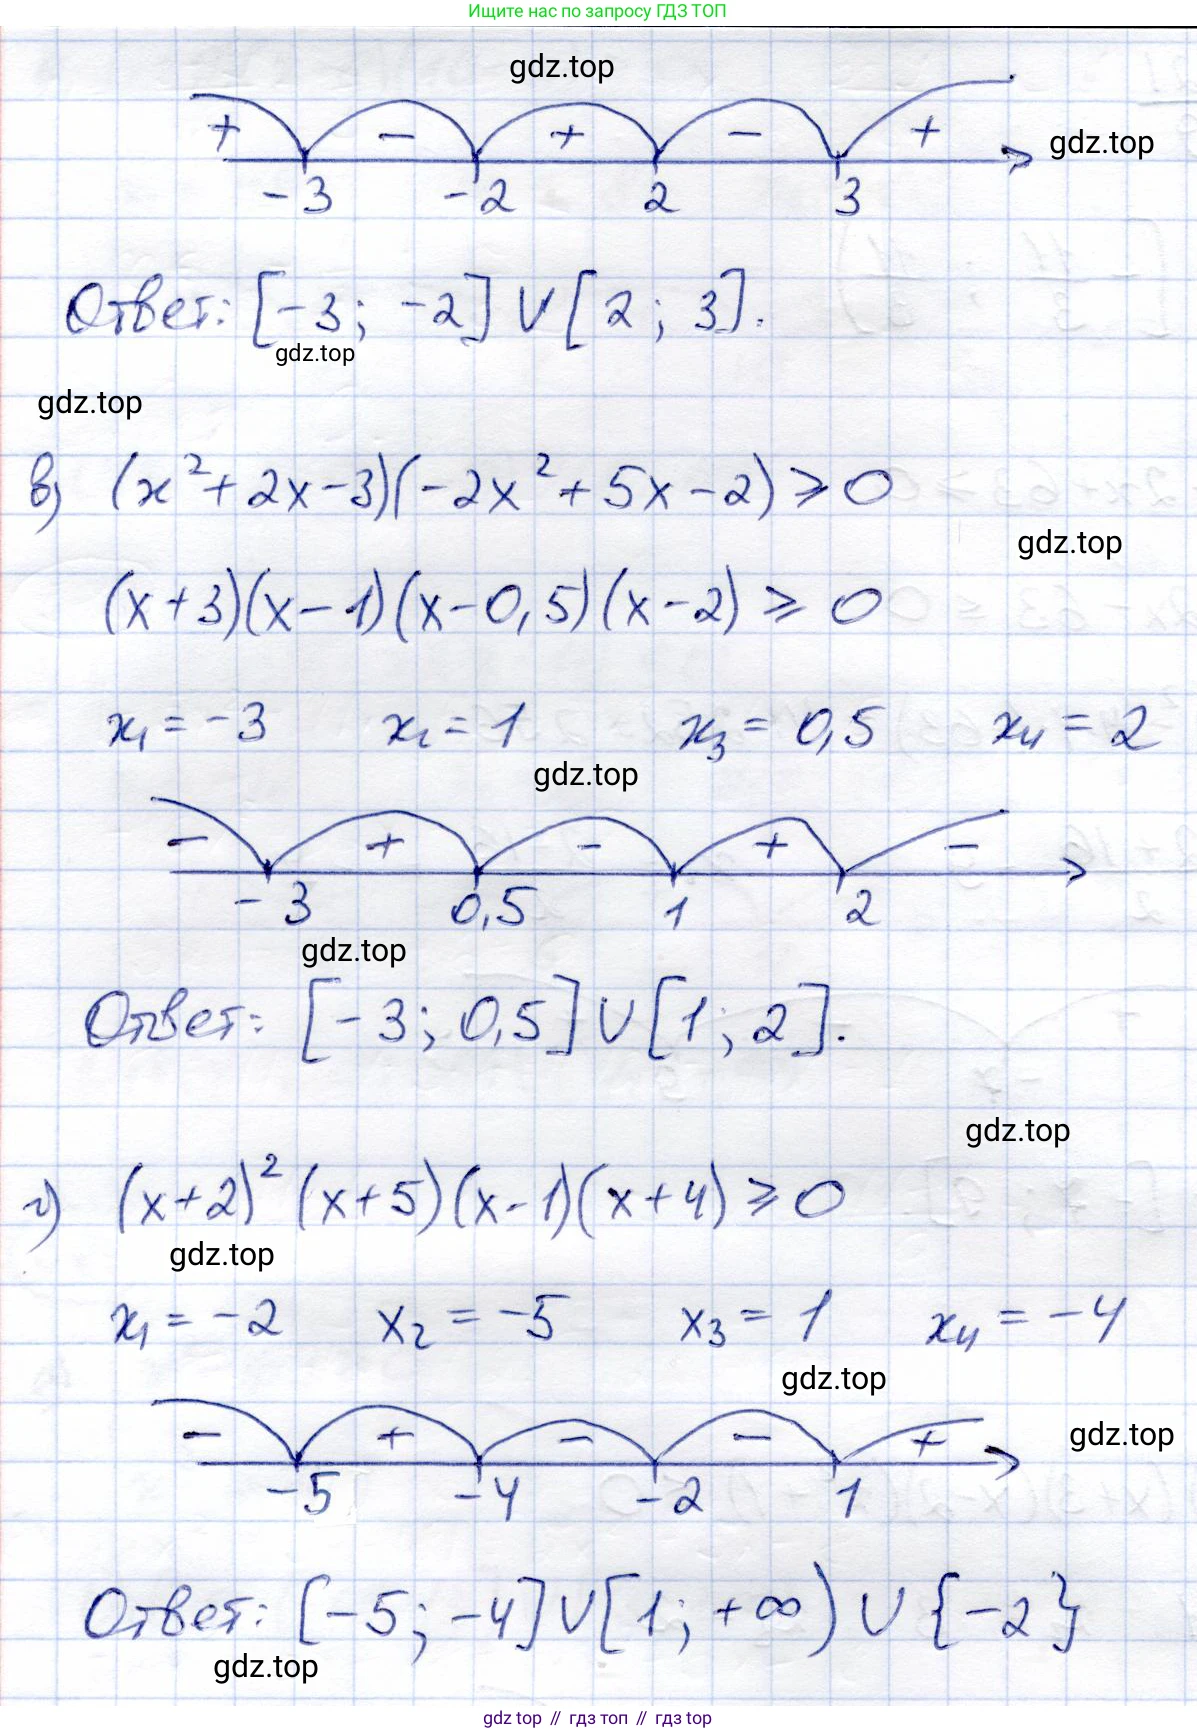 Ищите нас по запросу ГДЗ ТОП
gdz.top
+ − + − +
gdz.top
-3 -2 2 3
Ответ: [-3; -2] ∪ [2; 3].
gdz.top
gdz.top
в) (x²+2x-3)(-2x²+5x-2)≥0
gdz.top
(x+3)(x-1)(x-0,5)(x-2)≥0
x₁=-3 x₂=1 x₃=0,5 x₄=2
gdz.top
− + − + −
-3 0,5 1 2
gdz.top
Ответ: [-3; 0,5] ∪ [1; 2].
gdz.top
г) (x+2)² (x+5)(x-1)(x+4)≥0
gdz.top
x₁=-2 x₂=-5 x₃=1 x₄=-4
gdz.top
− + − − +
gdz.top
-5 -4 -2 1
Ответ: [-5; -4] ∪ [1; +∞) ∪ {-2}
gdz.top
gdz top // гдз топ // gdz top